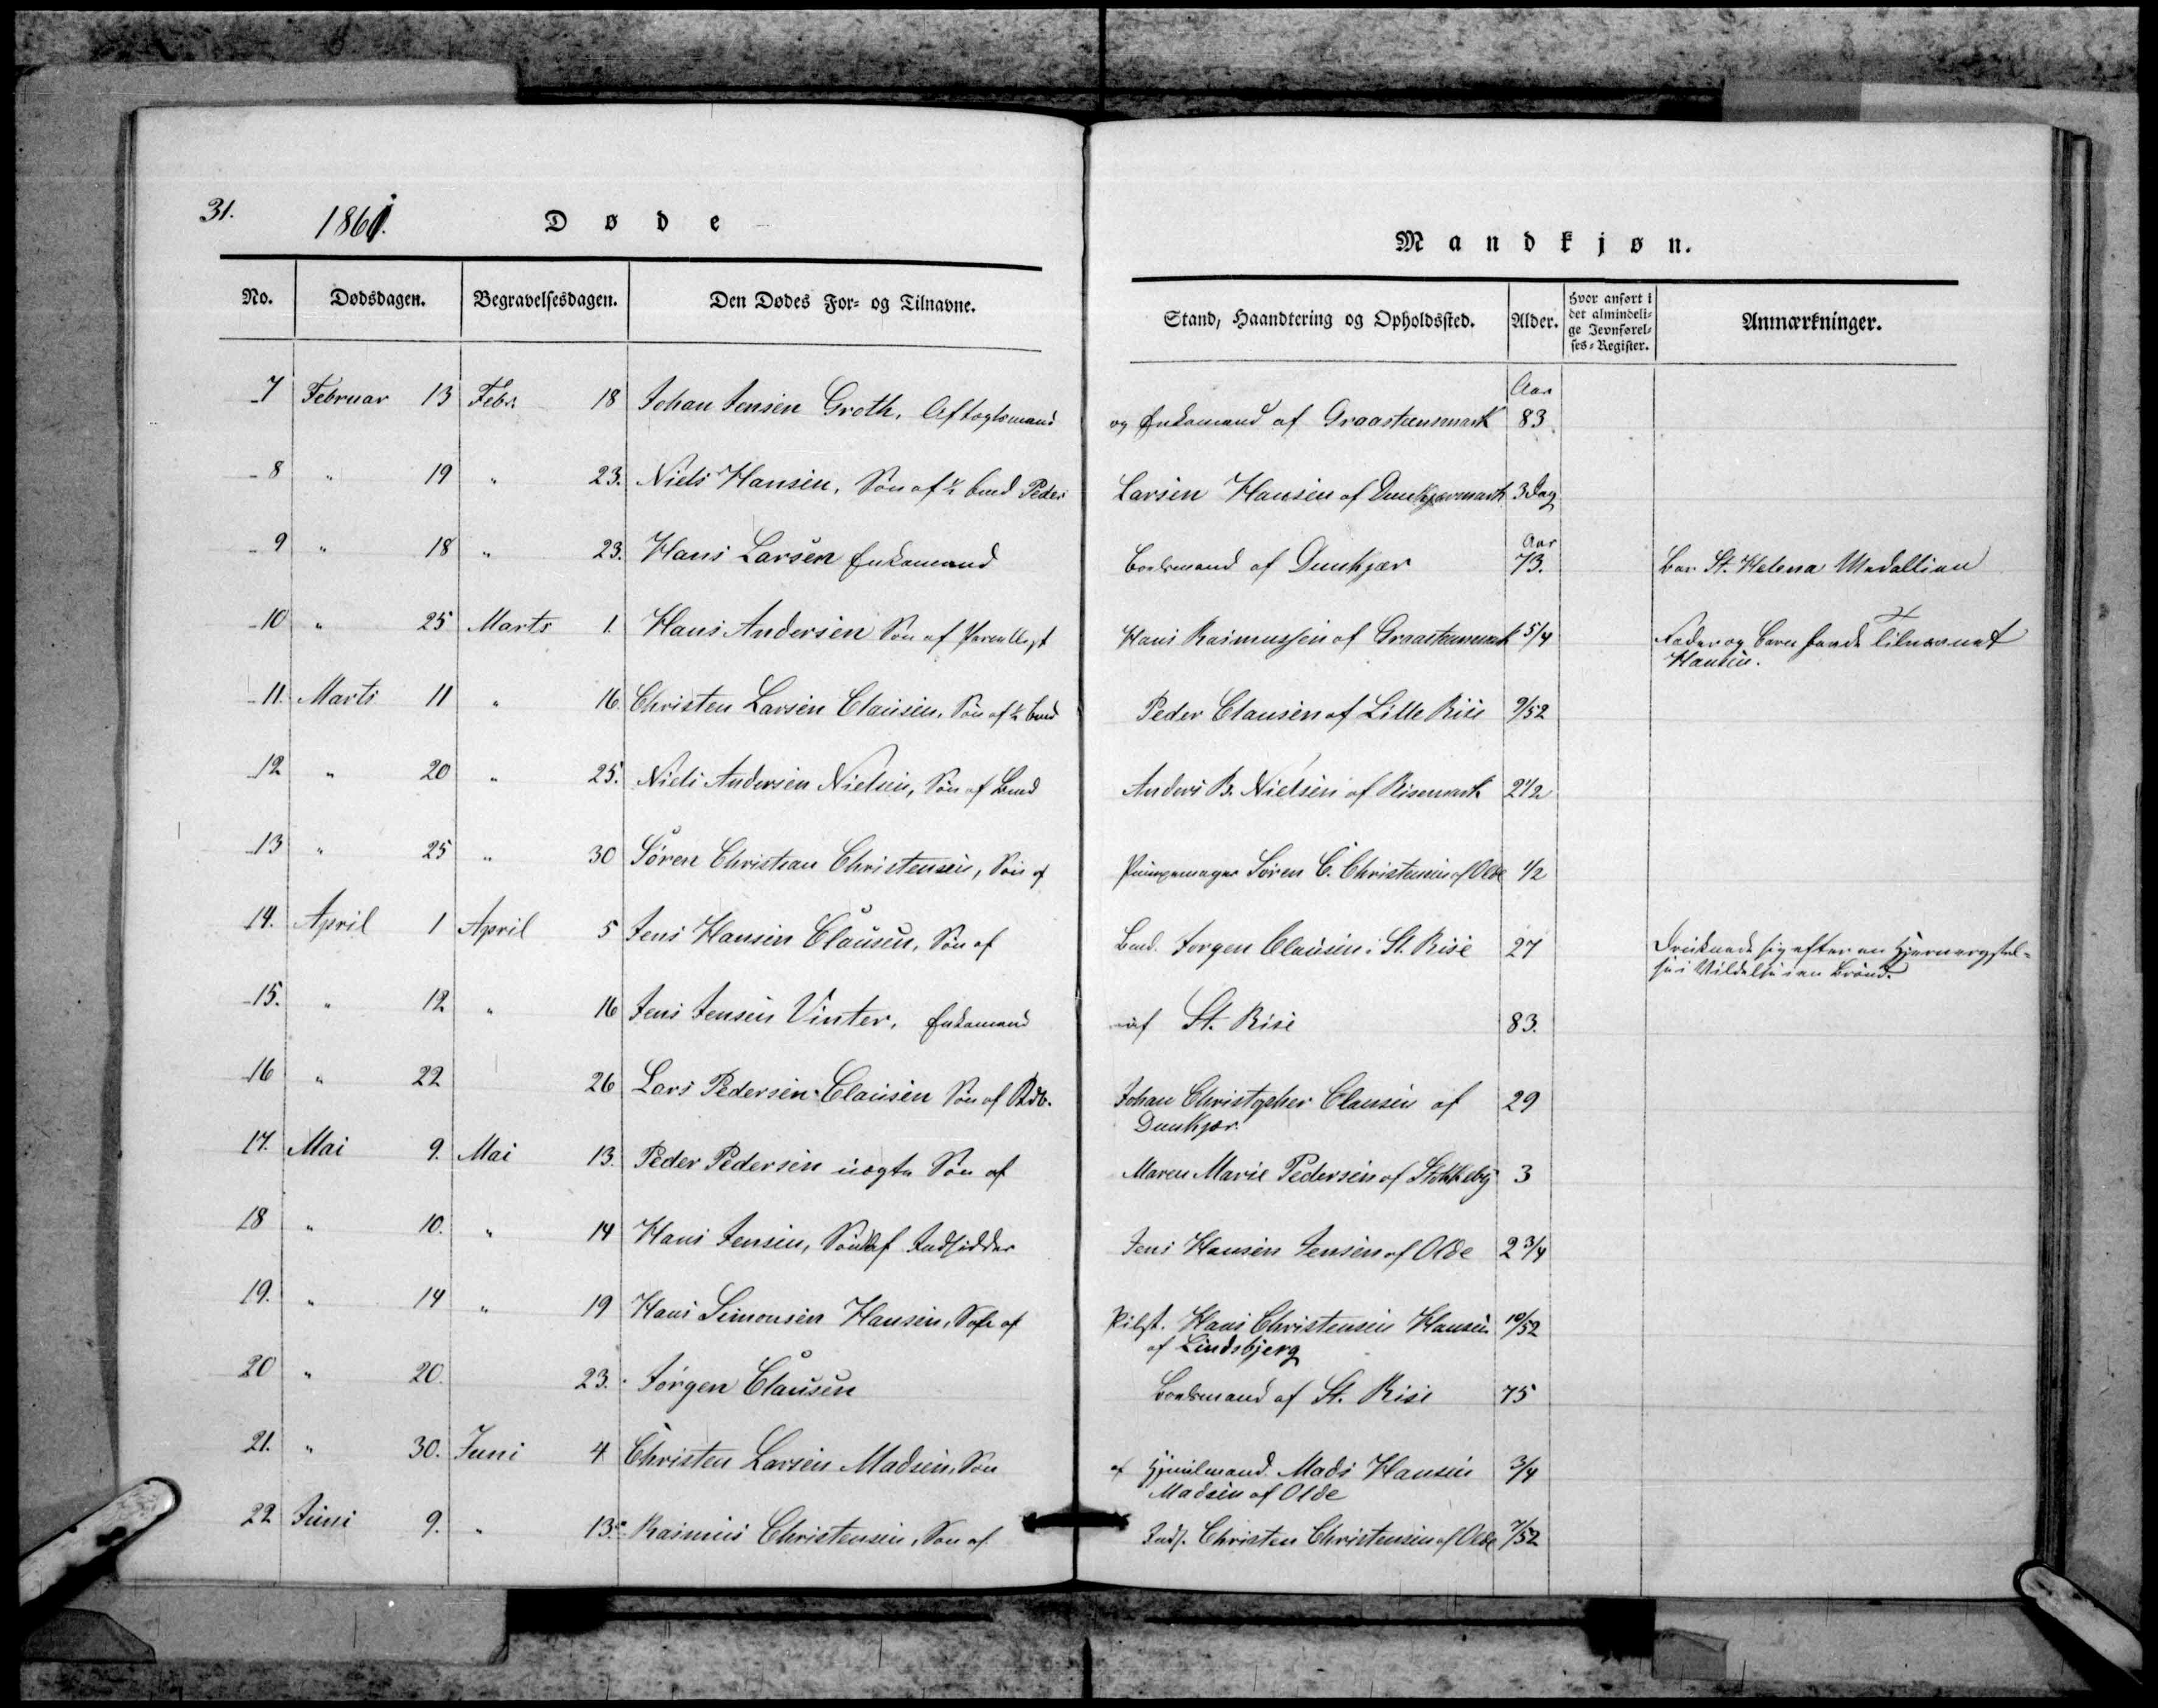 31.
1861.
Døde
Mandkjøn.
No. Dødsdagen. Begravelsesdagen. Den Dødes For- og Tilnavne. Stand, Haandtering og Opholdssted. Alder. Hvor anført i det almindelige Jevnførelses-Register. Anmærkninger.
7 Februar 13 Febr. 18 Johan Jensen Groth, Aftægtsmand og Enkemand af Graasteensmark Aar 83
8 " 19 " 23. Niels Hansen, Søn af ½ Bmd Peder Larsen Hansen af Dunkjærmark 3 Dag
9 " 18 " 23. Hans Larsen Enkemand Boelsmand af Dunkjær Aar 73. Bar St. Helena Medallien
10 " 25 Marts 1. Hans Andersen Søn af Hans Rasmussen af Graasteensmark 5/4 Fader og Barn havde Tilnavnet
Hansen.
11. Marts 11 " 16. Christen Larsen Clausen, Søn af ½ Bmd Peder Clausen af Lille Rise 9/52
12 " 20 " 25. Niels Andersen Nielsen, Søn af Bmd Anders B. Nielsen af Risemark 2½
13 " 25 " 30 Søren Christian Christensen, Søn af Pumpemager Søren C. Christensen af Olde ½
14. April 1 April 5 Jens Hansen Clausen, Søn af Bmd. Jørgen Clausen i St. Rise 27 Druknede sig efter en Hjernerystel-
se i Vildelse i en Brønd.
15. " 12 " 16 Jens Jensen Vinter, Enkemand af St. Rise 83.
16 " 22 26 Lars Pedersen Clausen Søn af Johan Christopher Clausen af 29
Dunkjær
17. Mai 9. Mai 13. Peder Pedersen uægte Søn af Maren Marie Pedersen af Stokkeby 3
18 " 10. " 14 Hans Jensen, Søn af Indsidder Jens Hansen Jensen af Olde 2¾
19. " 14 " 19 Hans Simonsen Hansen, Søn af Hans Christensen Hansen 10/52
af Lindsbjerg
20 " 20 23. Jørgen Clausen Boelsmand af St. Rise 75
21. " 30. Juni 4 Christen Larsen Madsen, Søn af Hjuulmand Mads Hansen 3/4
Madsen af Olde
22 Juni 9. " 13. Rasmus Christensen, Søn af Inds. Christen Christensen af Olde 7/52